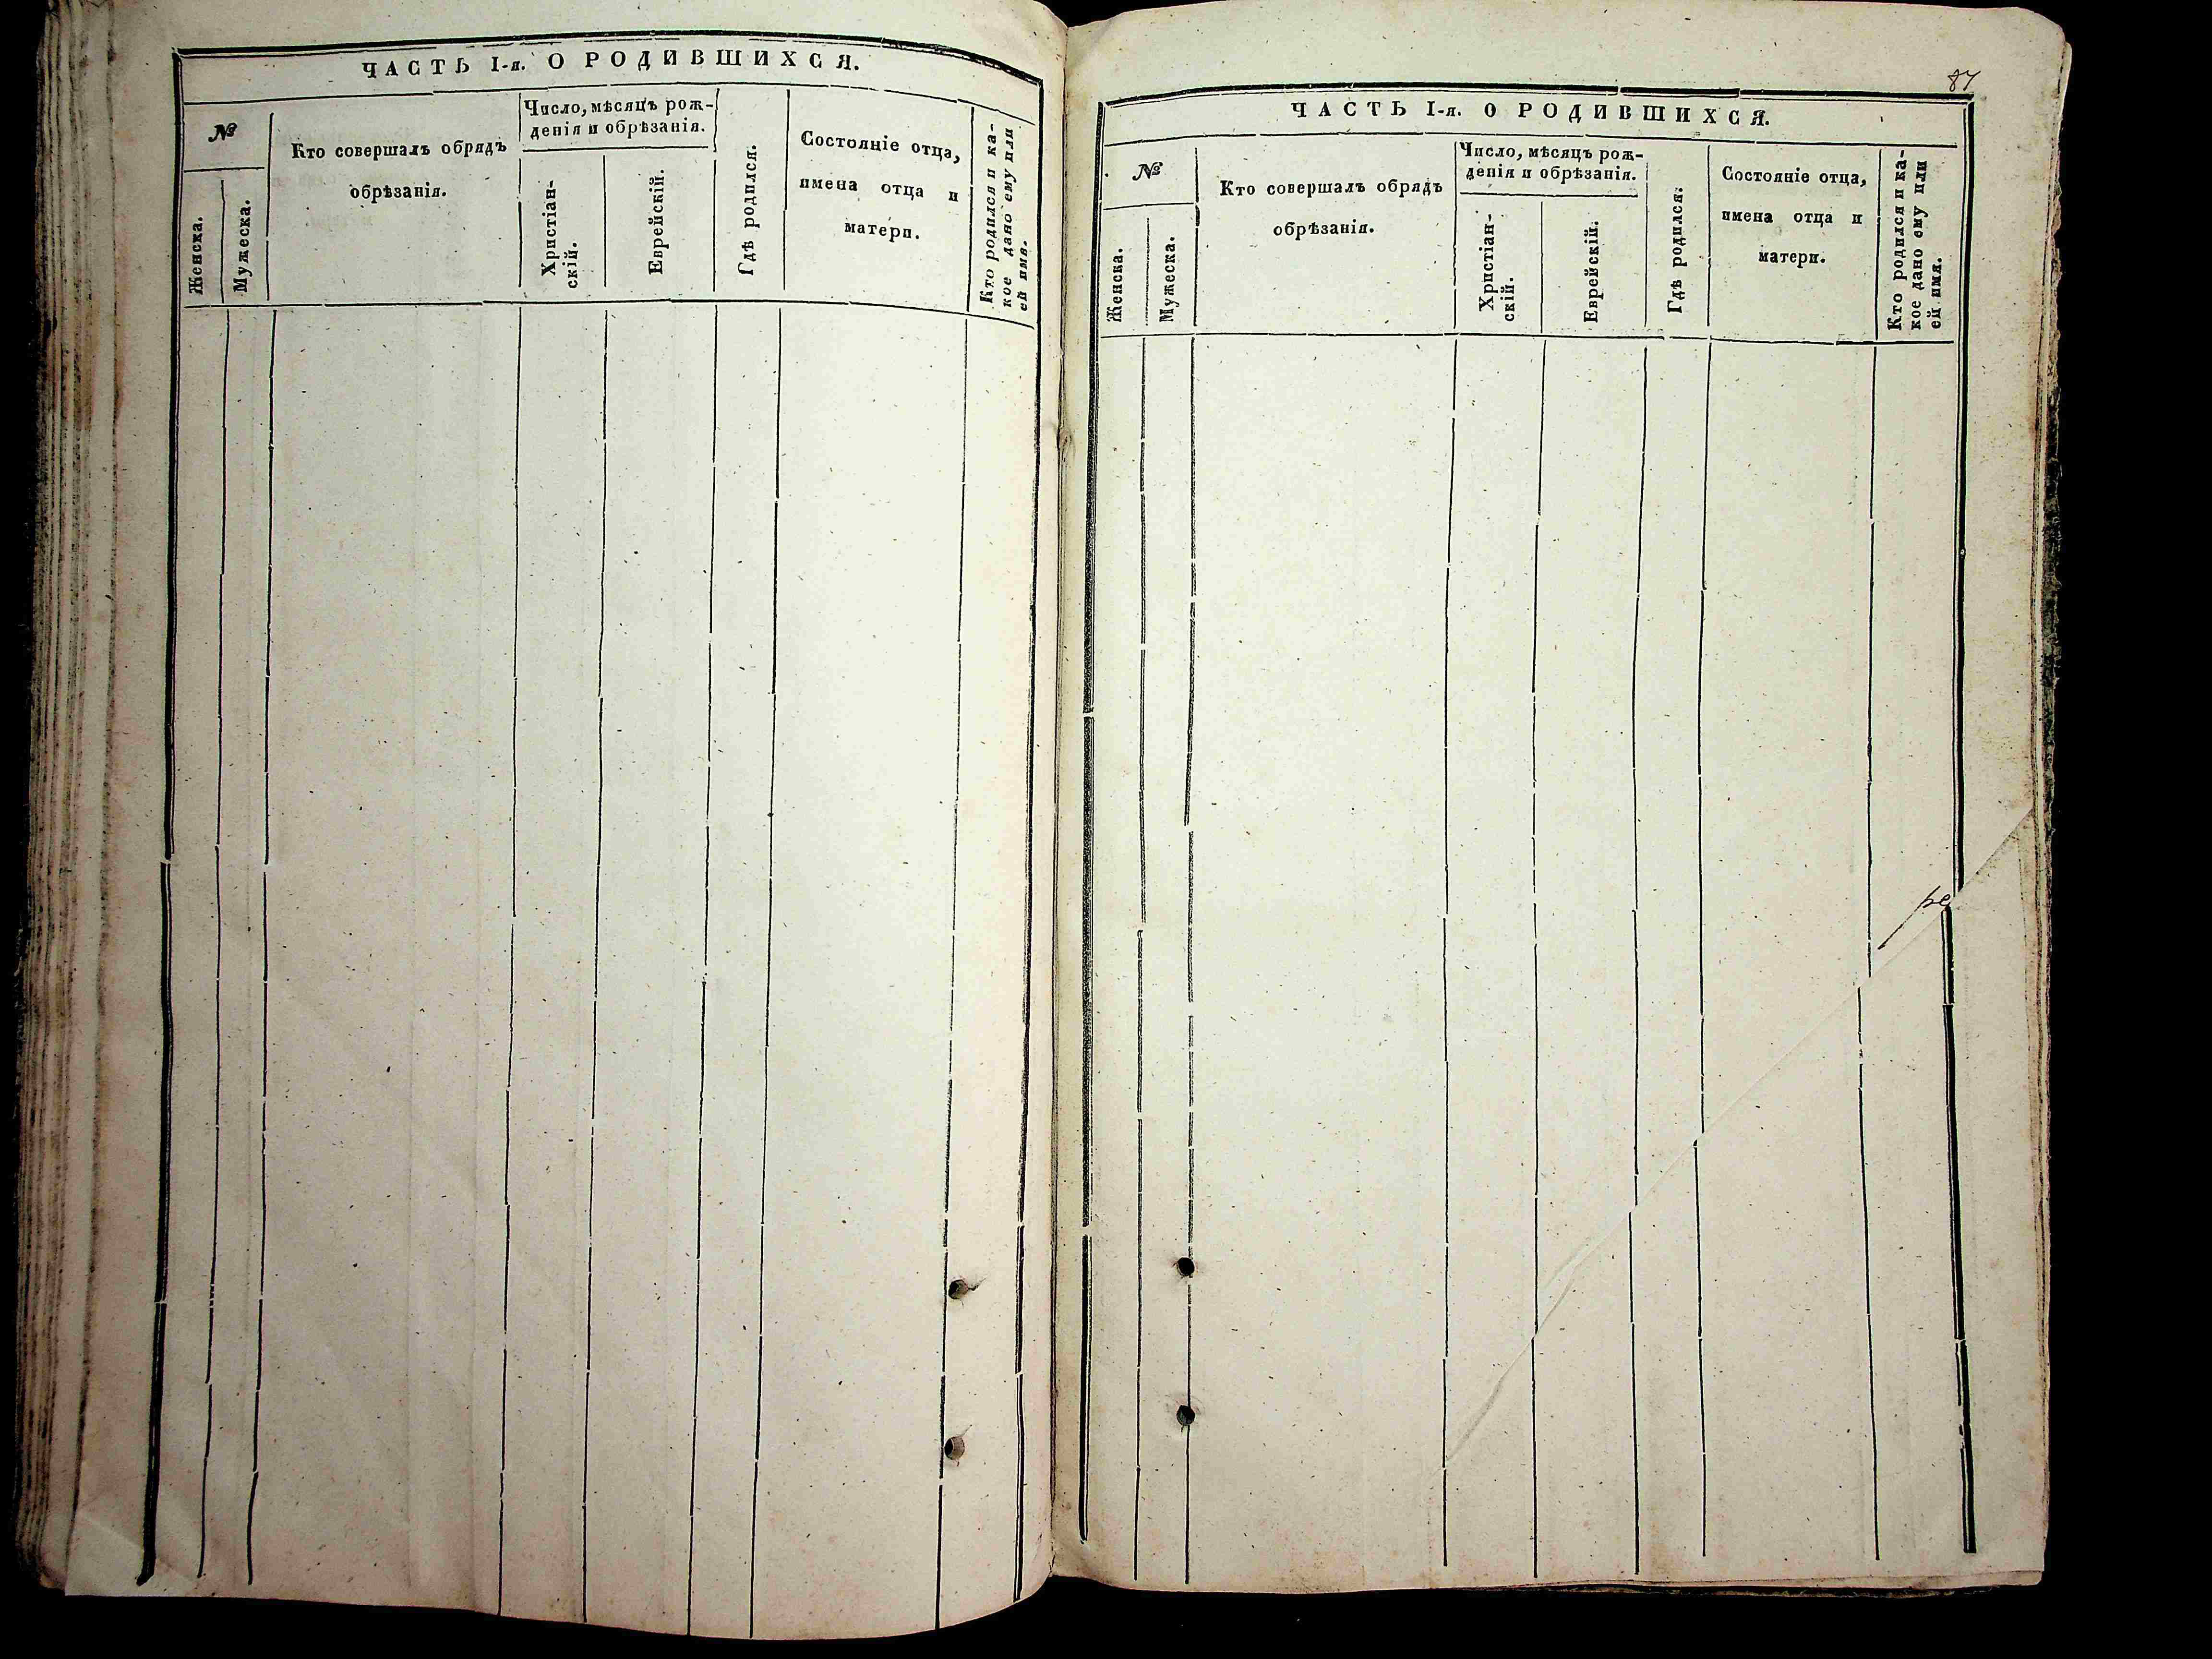 ЧАСТЬ I-я. О РОДИВШИХСЯ.
№
Женска.
Мужеска.
Кто совершалъ обрядъ
обрѣзанія.
Число, мѣсяцъ рож-
денія и обрѣзанія.
Христіан-
скій.
Еврейскій.
Гдѣ родился.
Состояніе отца,
имена отца и
матери.
Кто родился и ка-
кое дано ему или
ей имя.
87
ЧАСТЬ I-я. О РОДИВШИХСЯ.
№
Женска.
Мужеска.
Кто совершалъ обрядъ
обрѣзанія.
Число, мѣсяцъ рож-
денія и обрѣзанія.
Христіан-
скій.
Еврейскій.
Гдѣ родился.
Состояніе отца,
имена отца и
матери.
Кто родился и ка-
кое дано ему или
ей имя.